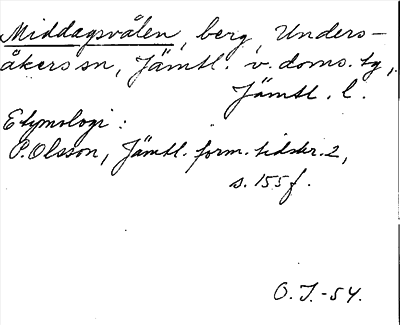 Middagsvålen, berg, Unders-
åkers sn, Jämtl. v. doms. tg,
Jämtl. l.
Etymologi:
P. Olsson, Jämtl. forn. tidskr. 2,
s. 155 f.
O. J. -54.